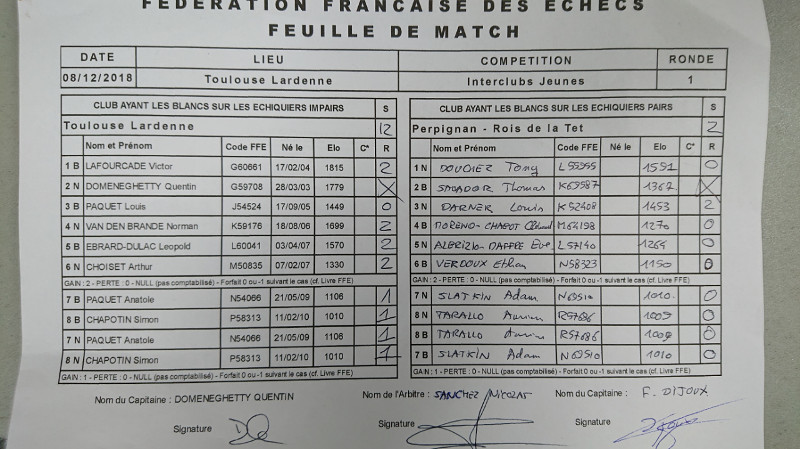 FEDERATION FRANCAISE DES ECHECS
FEUILLE DE MATCH
DATE LIEU COMPETITION RONDE
08/12/2018 Toulouse Lardenne Interclubs Jeunes 1
CLUB AYANT LES BLANCS SUR LES ECHIQUIERS IMPAIRS S
Toulouse Lardenne 12
Nom et Prénom Code FFE Né le Elo C* R
1 B LAFOURCADE Victor G60661 17/02/04 1815 2
2 N DOMENEGHETTY Quentin G59708 28/03/03 1779 X
3 B PAQUET Louis J54524 17/09/05 1449 0
4 N VAN DEN BRANDE Norman K59176 18/08/06 1699 2
5 B EBRARD-DULAC Leopold L60041 03/04/07 1570 2
6 N CHOISET Arthur M50835 07/02/07 1330 2
GAIN : 2 - PERTE : 0 - NULL (pas comptabilisé) - Forfait 0 ou -1 suivant le cas (cf. Livre FFE)
7 B PAQUET Anatole N54066 21/05/09 1106 1
8 B CHAPOTIN Simon P58313 11/02/10 1010 1
7 N PAQUET Anatole N54066 21/05/09 1106 1
8 N CHAPOTIN Simon P58313 11/02/10 1010 1
GAIN : 1 - PERTE : 0 - NULL (pas comptabilisé) - Forfait 0 ou -1 suivant le cas (cf. Livre FFE)
CLUB AYANT LES BLANCS SUR LES ECHIQUIERS PAIRS S
Perpignan - Rois de la Tet 2
Nom et Prénom Code FFE Né le Elo C* R
1 N Tony 1551 0
2 B Thomas K69587 1367 X
3 N DARNER Louis K52408 1453 2
4 B MORENO-CHABOT M64198 1270 0
5 N Eve L57140 1264 0
6 B VERDOUX Ethan N58323 1150 0
GAIN : 2 - PERTE : 0 - NULL (pas comptabilisé) - Forfait 0 ou -1 suivant le cas (cf. Livre FFE)
7 N SLATKIN Adam N69510 1010 0
8 N TARALLO R57686 1009 0
8 B TARALLO R57686 1009 0
7 B SLATKIN Adam N69510 1010 0
GAIN : 1 - PERTE : 0 - NULL (pas comptabilisé) - Forfait 0 ou -1 suivant le cas (cf. Livre FFE)
Nom du Capitaine : DOMENEGHETTY QUENTIN Nom de l'Arbitre : SANCHEZ Nicolas Nom du Capitaine : F. DIJOUX
Signature Signature Signature